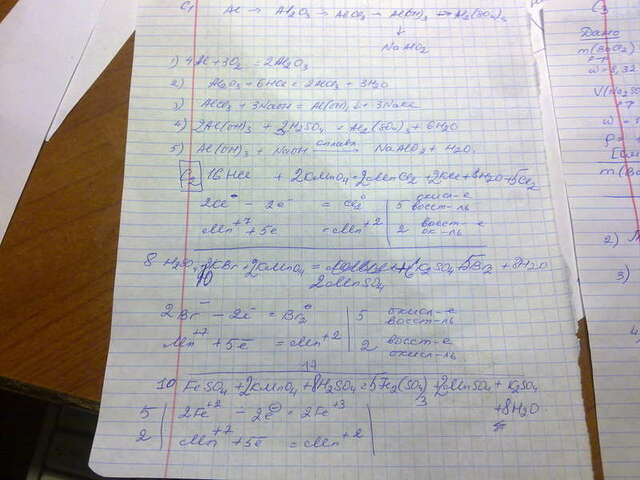 C1 Al → Al2O3 → AlCl3 → Al(OH)3 → Al2(SO4)3
↓
NaAlO2
1) 4Al + 3O2 = 2Al2O3
2) Al2O3 + 6HCl = 2AlCl3 + 3H2O
3) AlCl3 + 3NaOH = Al(OH)3↓ + 3NaCl
4) 2Al(OH)3 + 3H2SO4 = Al2(SO4)3 + 6H2O
5) Al(OH)3 + NaOH сплавл. NaAlO2 + H2O
C2 16HCl + 2KMnO4 = 2MnCl2 + 2KCl + 8H2O + 5Cl2
2Cl⁻ - 2e⁻ = Cl2⁰ | 5 окисл-е
восст-ль
Mn⁺⁷ + 5e = Mn⁺² | 2 восст-е
ок-ль
8 H2SO4 + 10KBr + 2KMnO4 = K2SO4 + 5Br2 + 8H2O
2MnSO4
2Br⁻ - 2e⁻ = Br2⁰ | 5 окисл-е
восст-ль
Mn⁺⁷ + 5e = Mn⁺² | 2 восст-е
окисл-ль
10 FeSO4 + 2KMnO4 + 8H2SO4 = 5Fe2(SO4)3 + 2MnSO4 + K2SO4
+ 8H2O
5 | 2Fe⁺² - 2e⁻ = 2Fe⁺³
2 | Mn⁺⁷ + 5e = Mn⁺²
C3
Дано
m(BaCl2)
ω =
m(Ba
2)
3)
4.